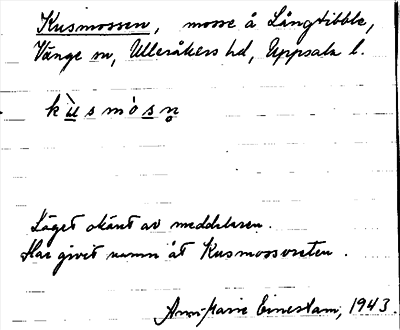 Kusmossen, mosse å Långtibble,
Vänge sn, Ulleråkers hd, Uppsala l.
kù̱smòs̱n̥
Läget okänt av meddelaren.
Har givit namn åt Kusmossvreten.
Ann-Marie Ernestam, 1943.